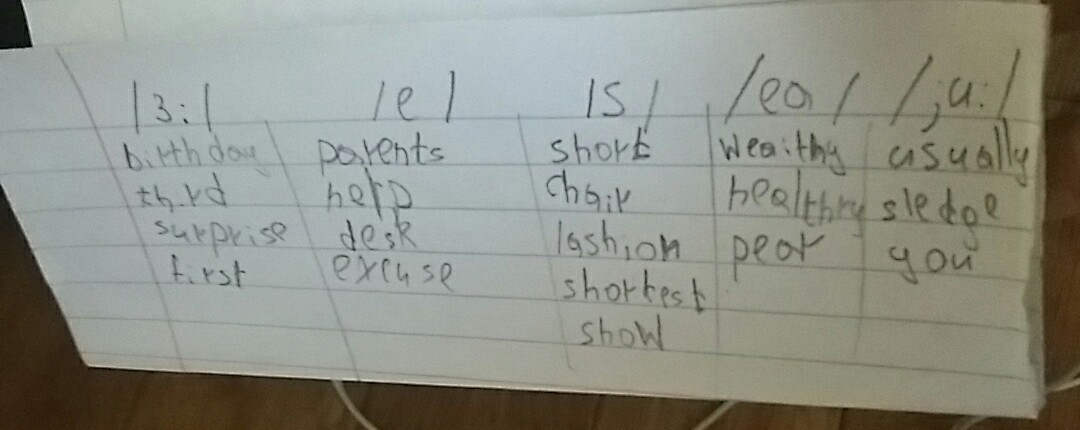 /3:/ /e/ /S/ /ea/ /;u:/
birthday parents short wealthy usually
third help chair healthy sledge
surprise desk fashion pear you
first excuse shortest
show